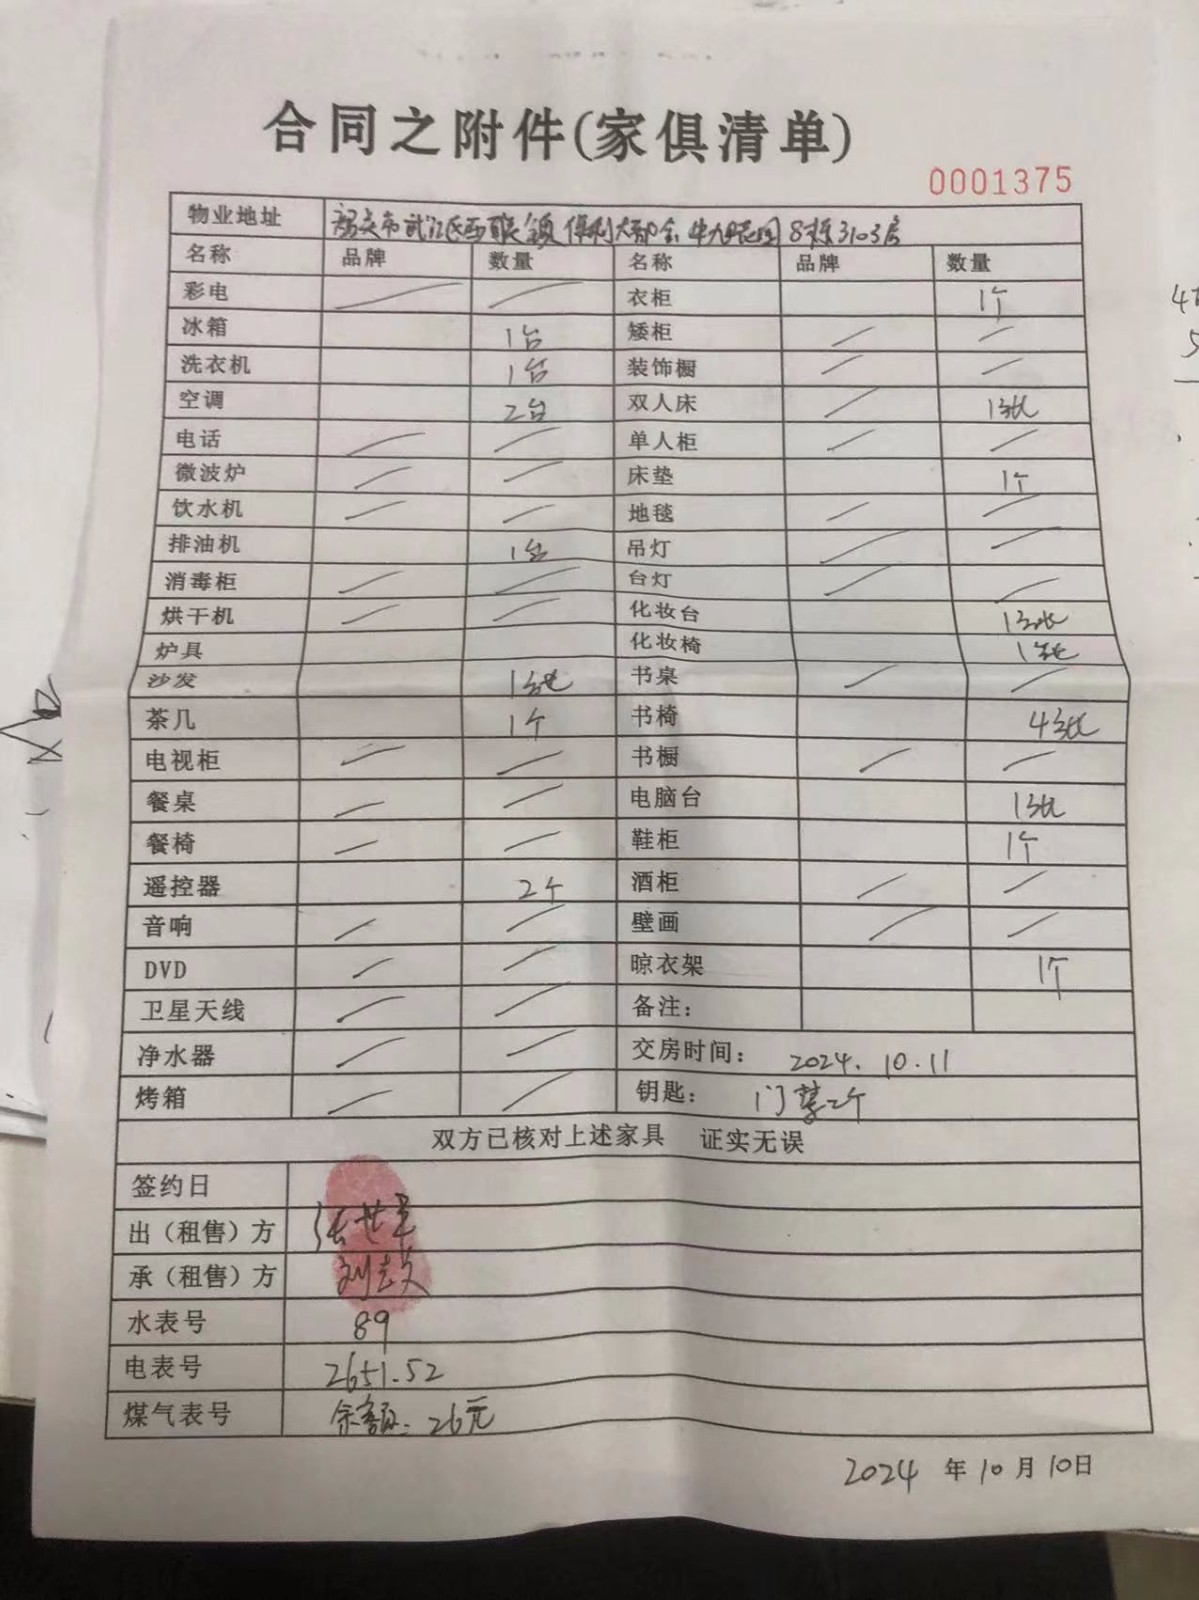 合同之附件(家俱清单)
0001375
物业地址 韶关市武江区西联镇保利大都会 8栋3103房
名称 品牌 数量 名称 品牌 数量
彩电 / / 衣柜 1个
冰箱 1台 矮柜 / /
洗衣机 1台 装饰橱 / /
空调 2台 双人床 / 1张
电话 / / 单人柜 / /
微波炉 / / 床垫 1个
饮水机 / / 地毯 / /
排油机 1台 吊灯 / /
消毒柜 / / 台灯 / /
烘干机 / / 化妆台 1张
炉具 化妆椅 1张
沙发 1张 书桌 / /
茶几 1个 书椅 4张
电视柜 / / 书橱 / /
餐桌 / / 电脑台 1张
餐椅 / / 鞋柜 1个
遥控器 2个 酒柜 / /
音响 / / 壁画 / /
DVD / / 晾衣架 1个
卫星天线 / / 备注：
净水器 / / 交房时间： 2024.10.11
烤箱 / / 钥匙： 门禁2个
双方已核对上述家具 证实无误
签约日
出（租售）方 张世
承（租售）方 刘志
水表号 89
电表号 2651.52
煤气表号 余额：26元
2024 年 10 月 10日